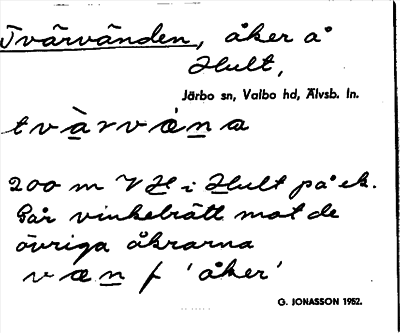 Tvärvänden, åker å
Hult,
Järbo sn, Valbo hd, Älvsb. ln.
tvàrvæ̀na
200 m V H i Hult på ek.
Går vinkelrätt mot de
övriga åkrarna
væn f 'åker'
G. JONASSON 1952.